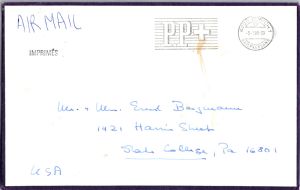 AIR MAIL
IMPRIMÉS
P.P.+
Mr. + Mrs. Bergmann
1421 Harris Street
State College, Pa 16801
USA